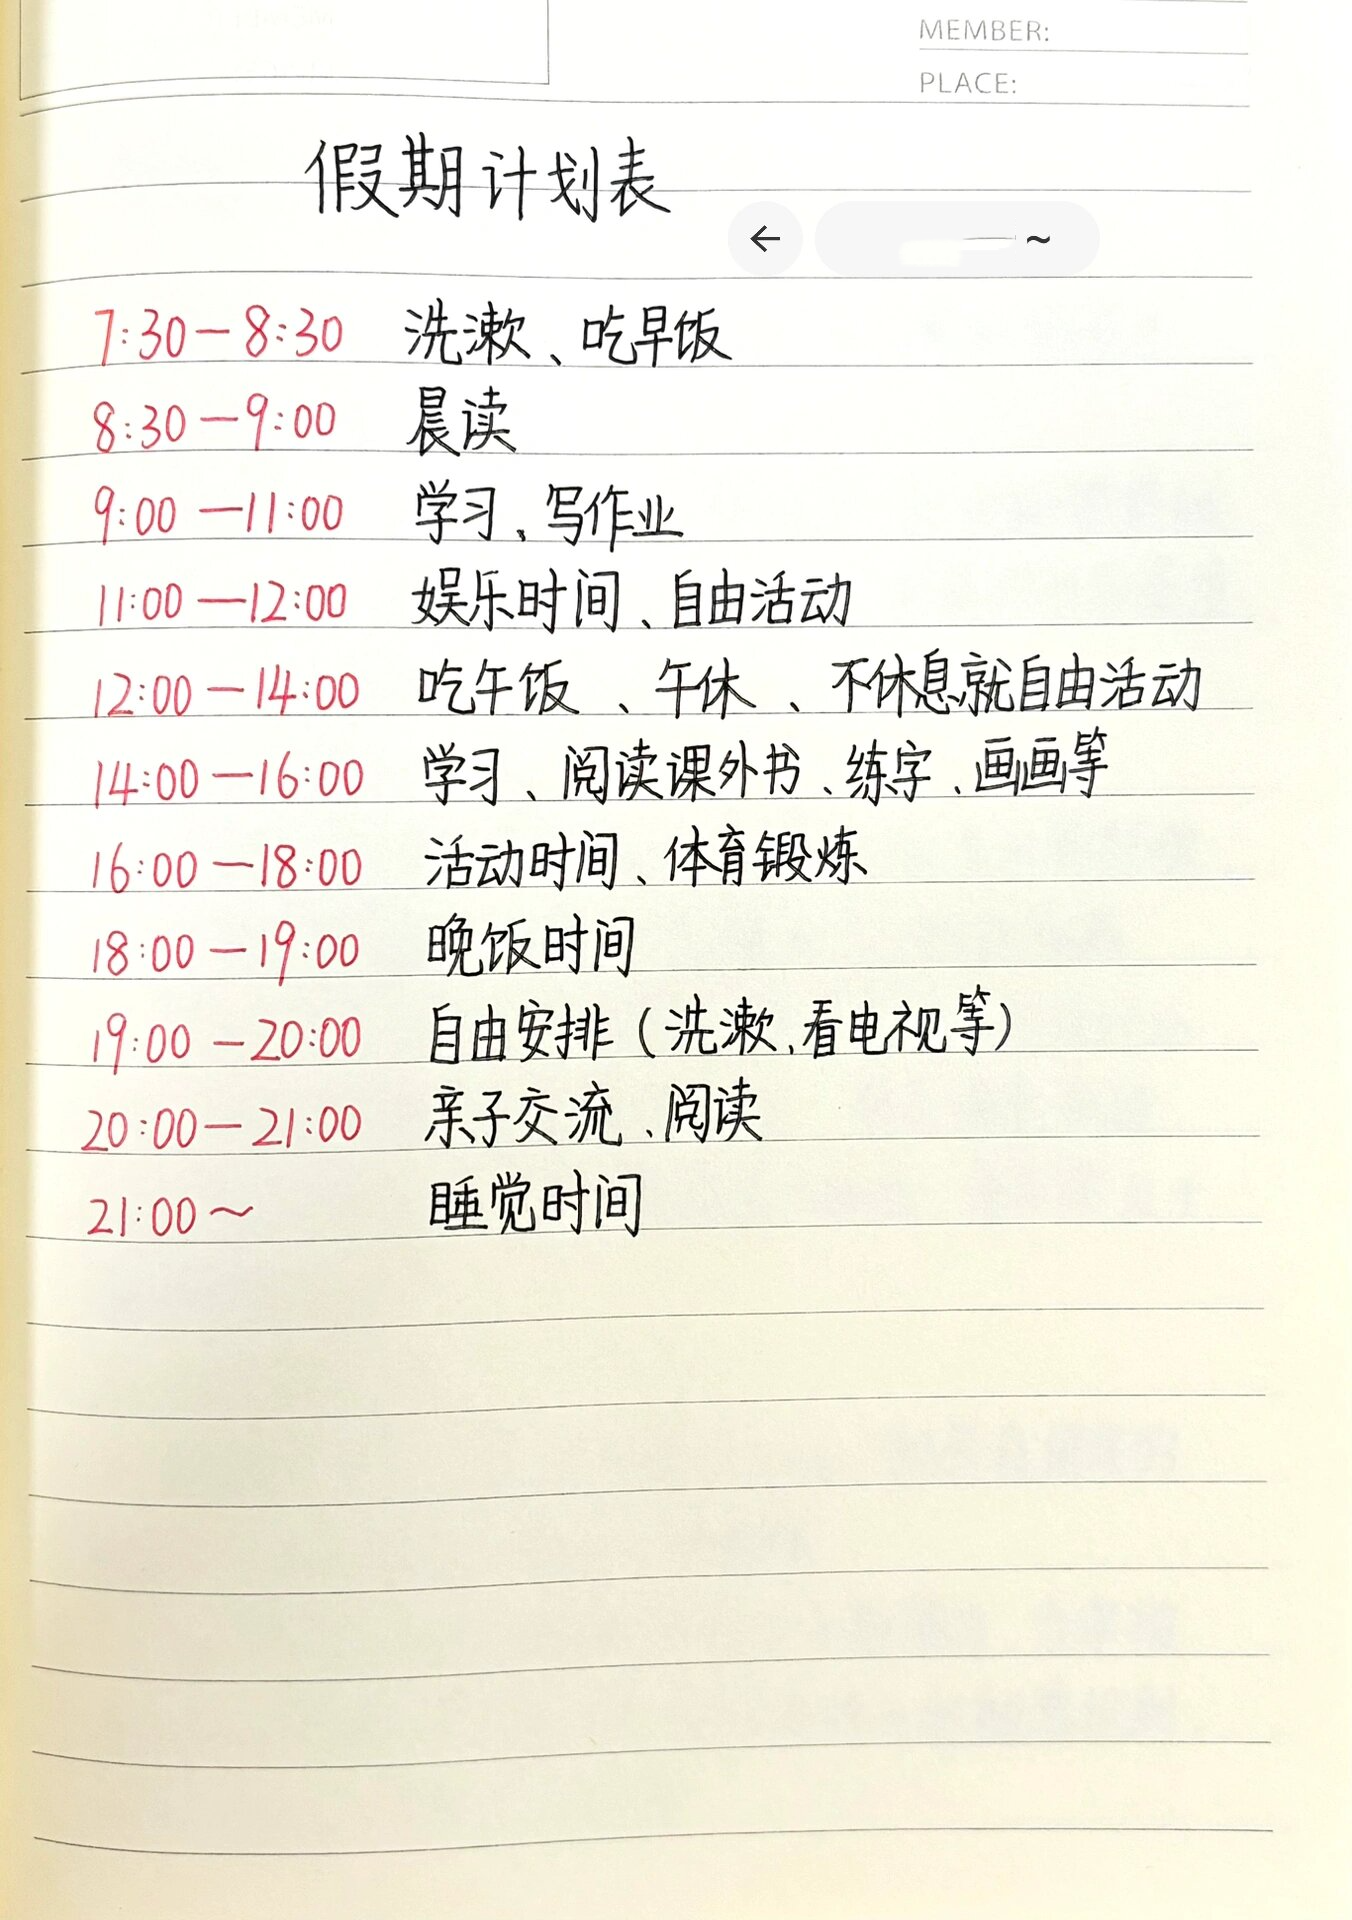 MEMBER:
PLACE:
假期计划表
← ~
7:30—8:30 洗漱、吃早饭
8:30—9:00 晨读
9:00—11:00 学习、写作业
11:00—12:00 娱乐时间、自由活动
12:00—14:00 吃午饭、午休、不休息就自由活动
14:00—16:00 学习、阅读课外书、练字、画画等
16:00—18:00 活动时间、体育锻炼
18:00—19:00 晚饭时间
19:00—20:00 自由安排(洗漱、看电视等)
20:00—21:00 亲子交流、阅读
21:00~ 睡觉时间